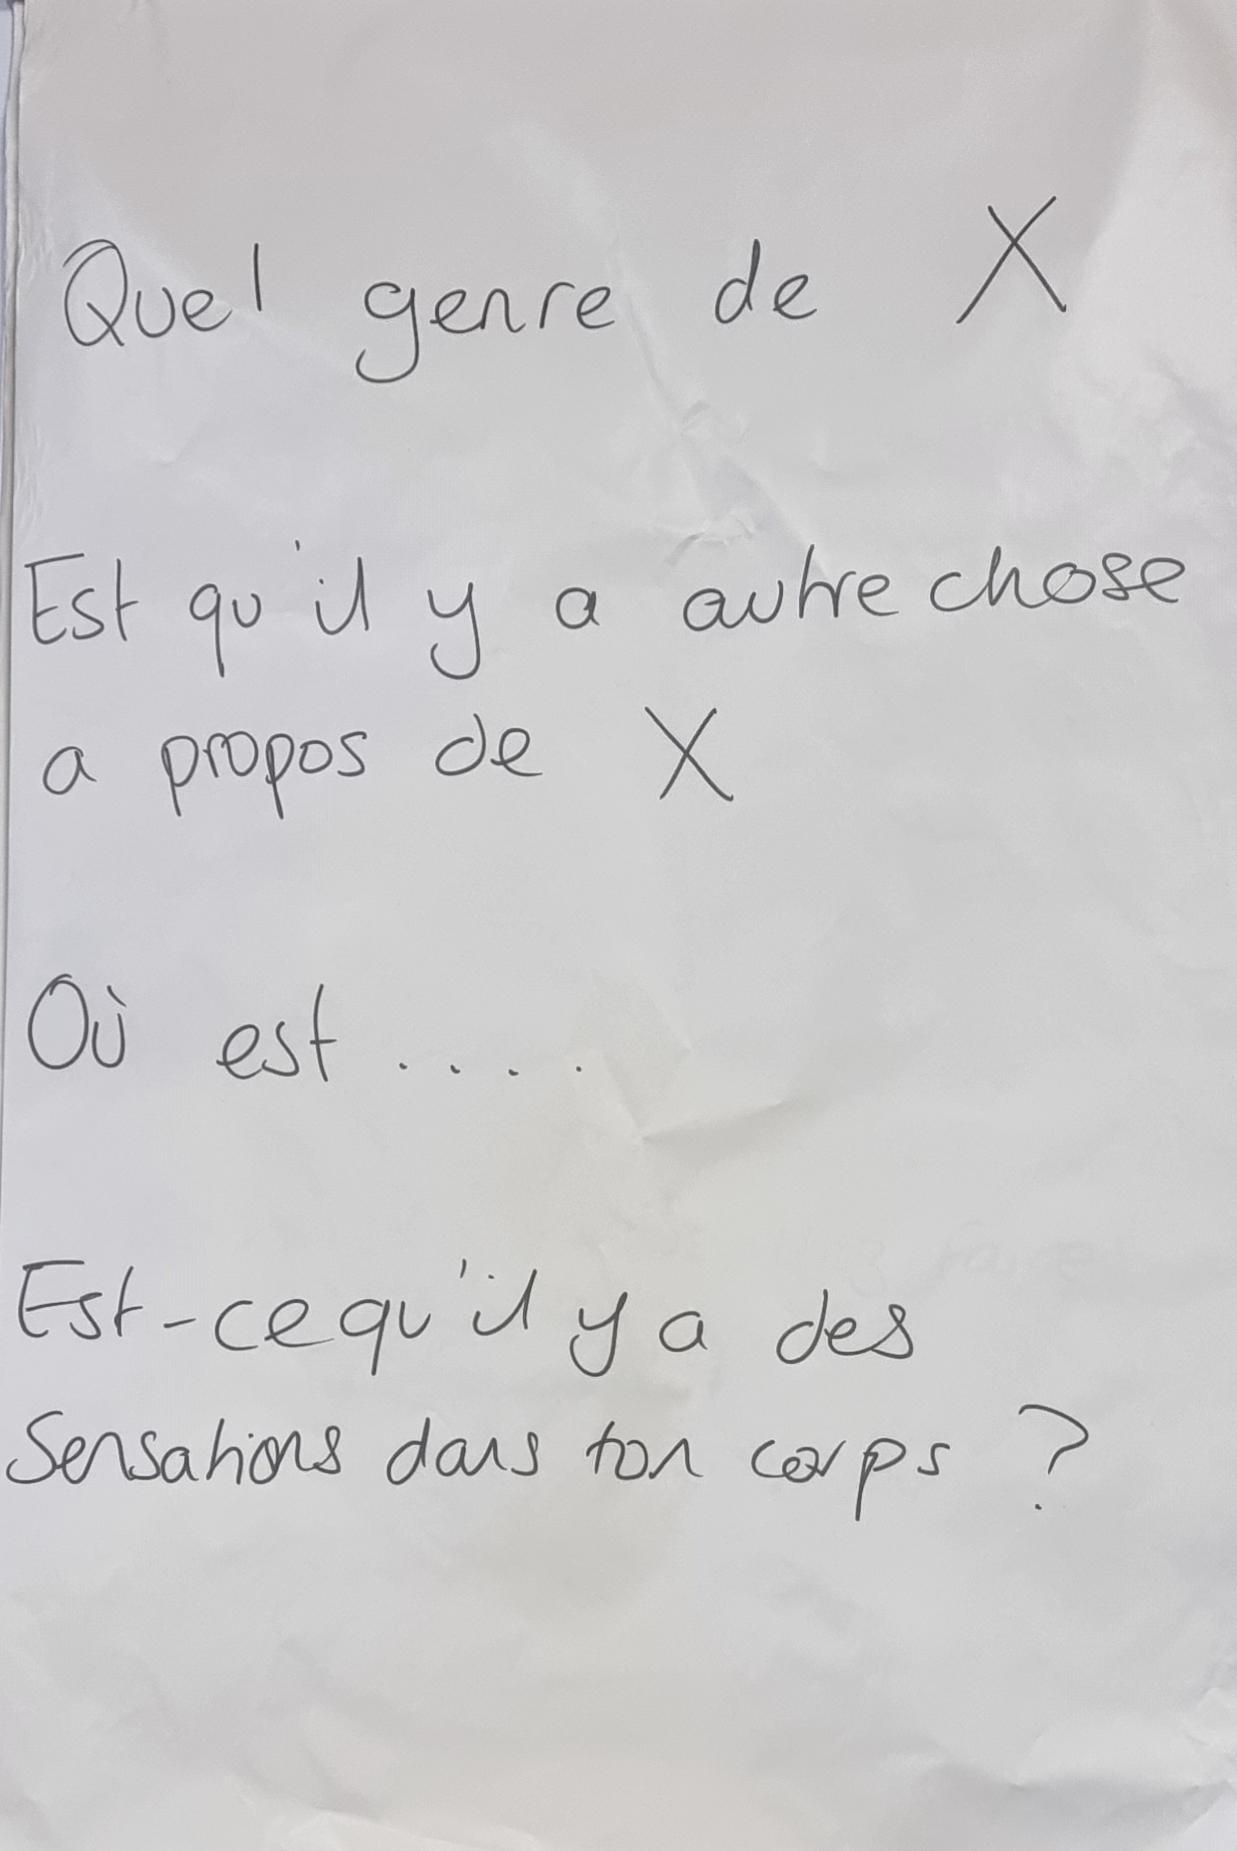 Quel genre de X
Est qu'il y a autre chose
a propos de X
Où est .....
Est-ce qu'il y a des
Sensations dans ton corps ?